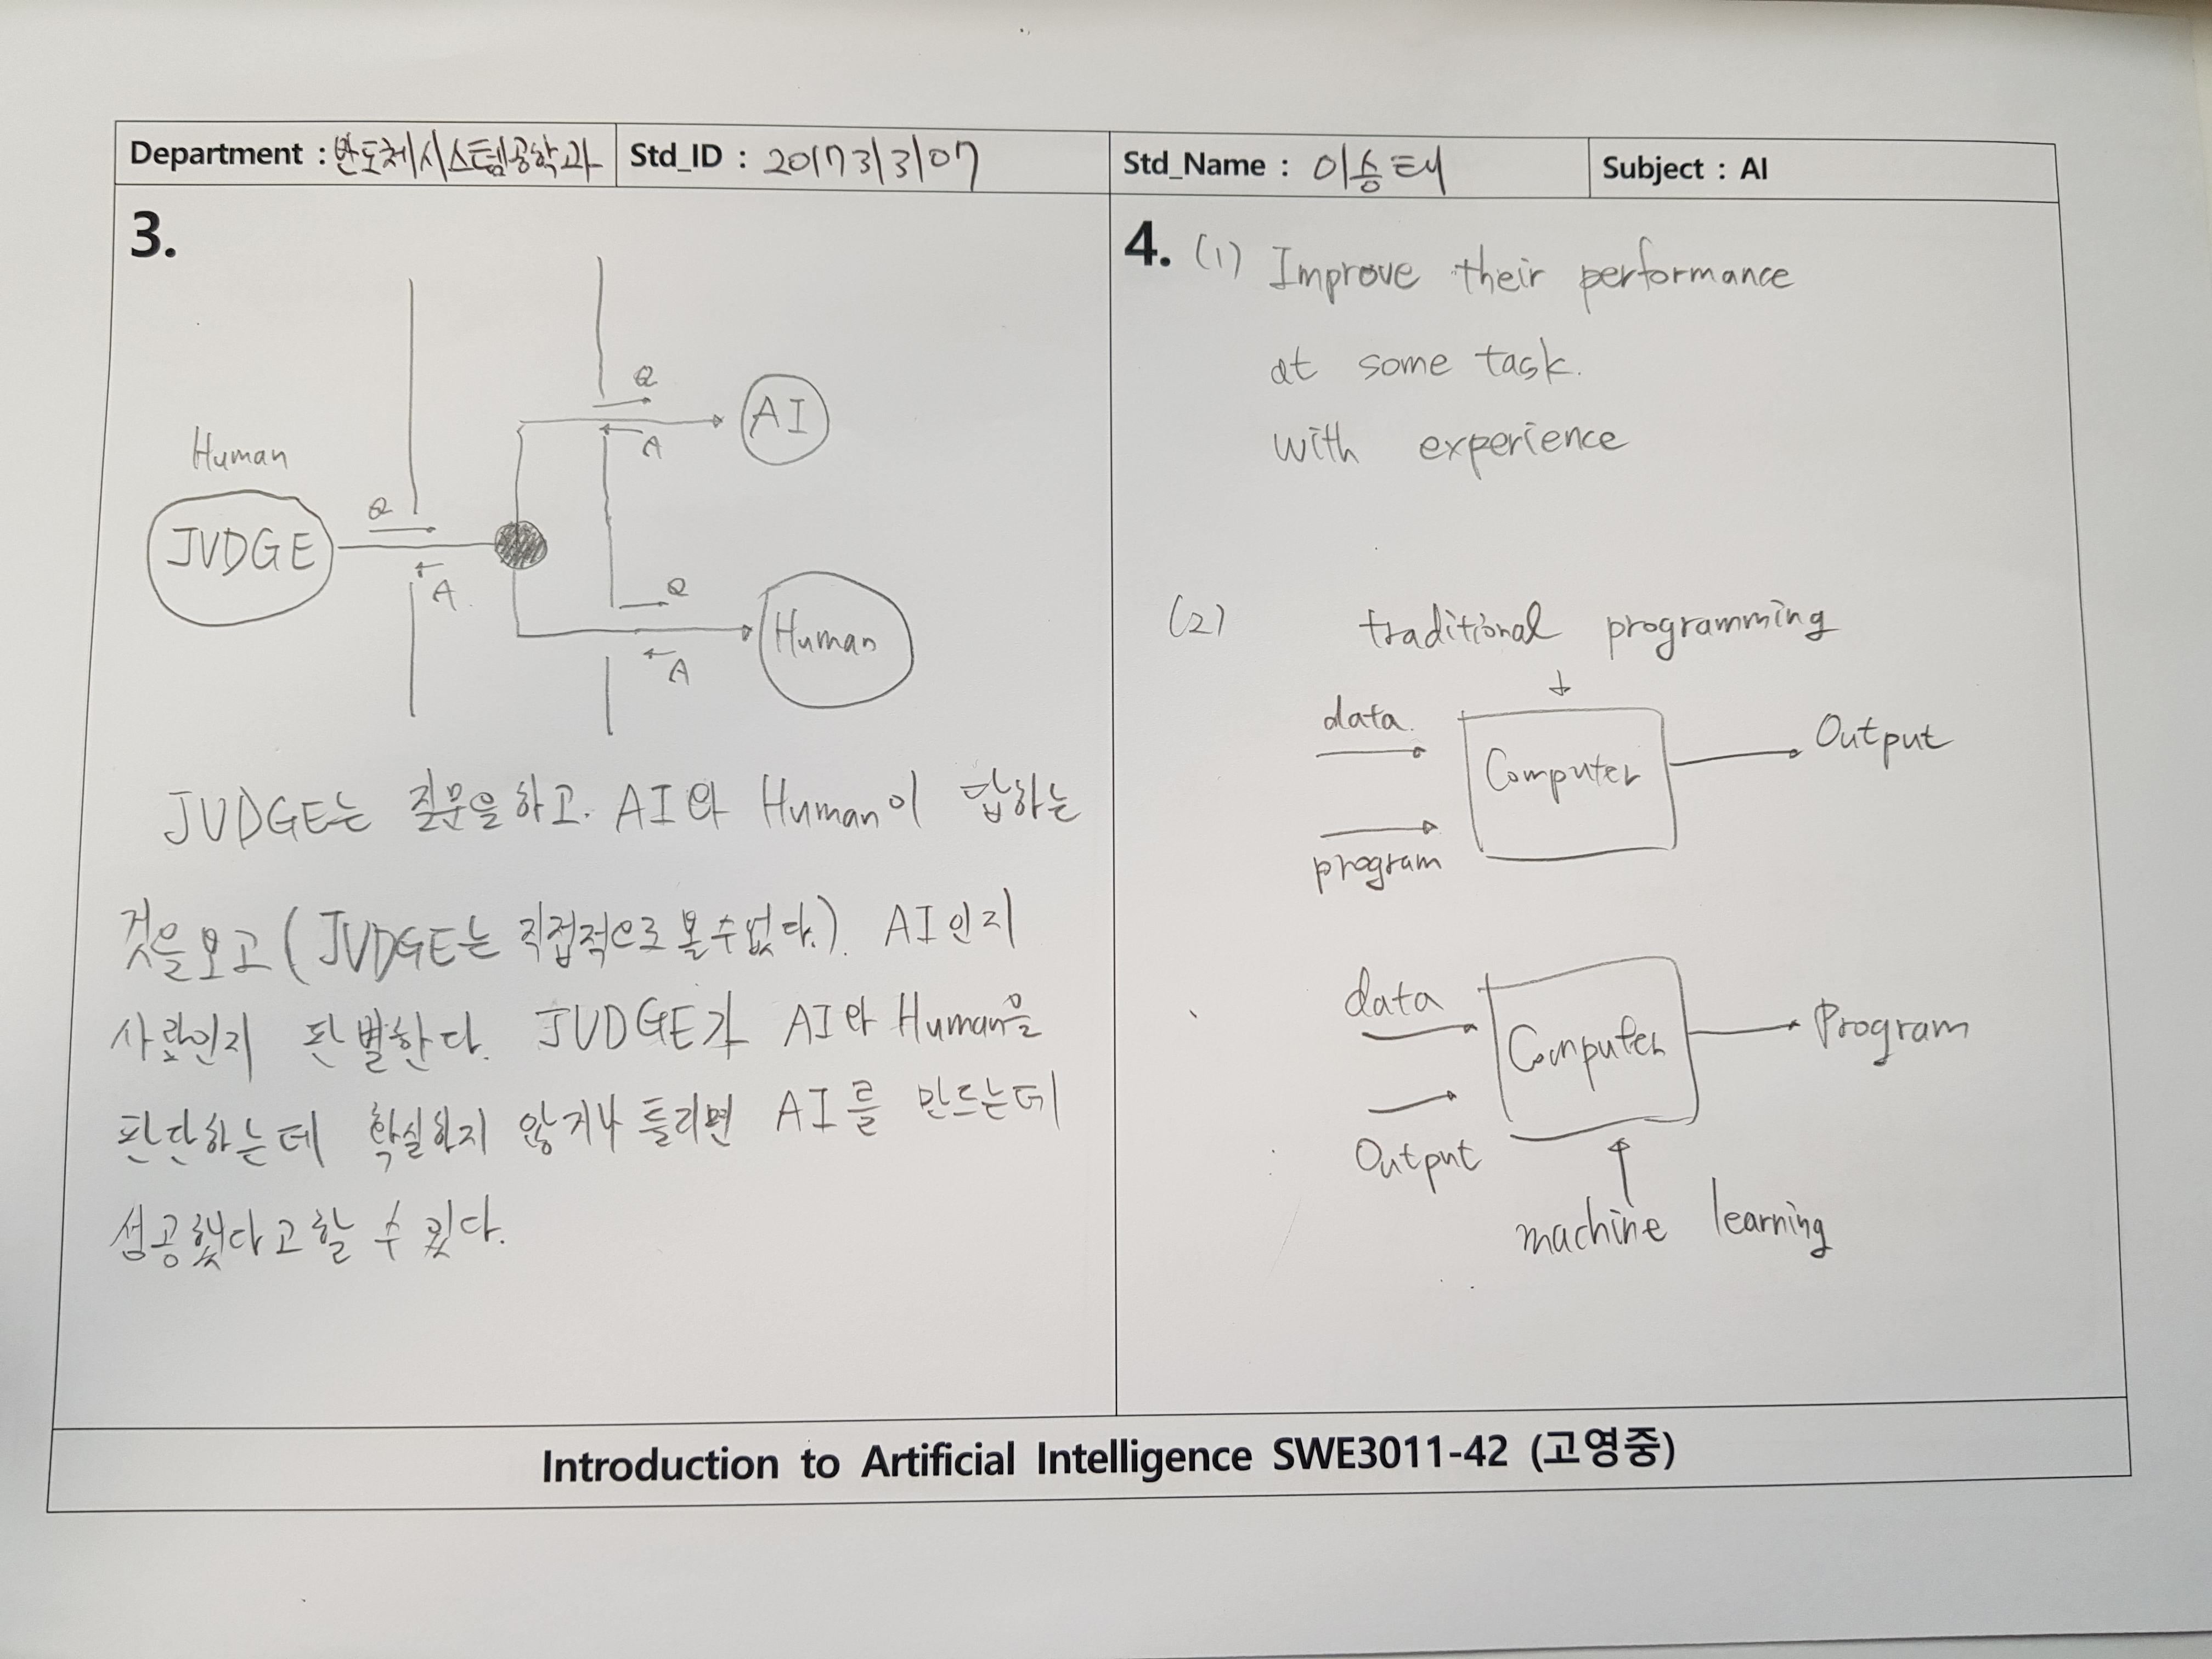 Department : 반도체시스템공학과 Std_ID : 2017313107 Std_Name : 이승태 Subject : AI
3.
Human
JUDGE
Q
A
Q
A
AI
Q
A
Human
JUDGE는 질문을 하고. AI와 Human이 답하는
것을 보고 (JUDGE는 직접적으로 볼 수 없다.). AI인지
사람인지 판별한다. JUDGE가 AI와 Human을
판단하는데 확실하지 않거나 틀리면 AI를 만드는데
성공했다고 할 수 있다.
4. (1) Improve their performance
at some task.
with experience
(2) traditional programming
data
program
Computer
Output
data
Output
Computer
Program
machine learning
Introduction to Artificial Intelligence SWE3011-42 (고영중)